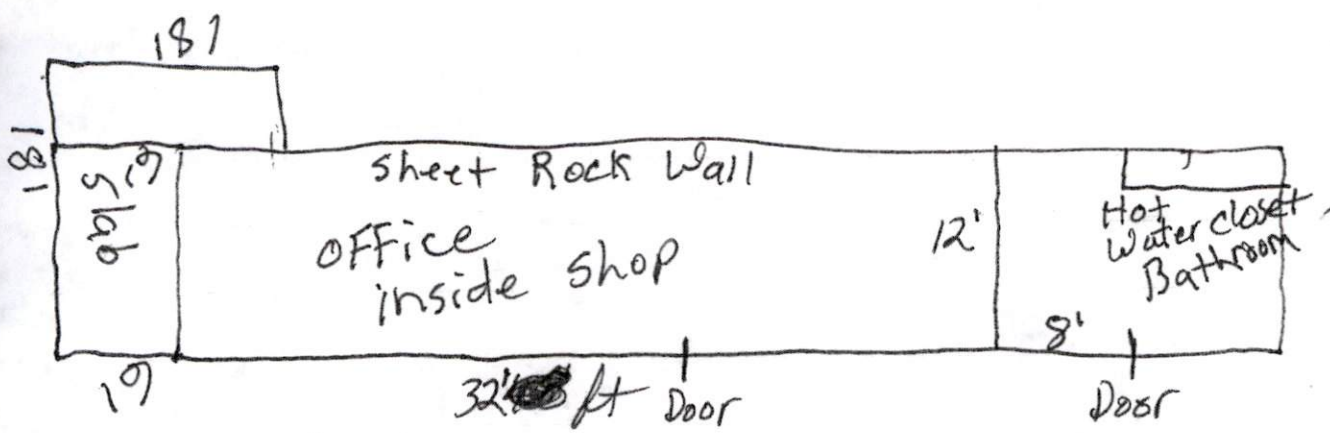 18'
18'
6'
Slab
Sheet Rock Wall
OFFice
inside Shop
12'
Hot
Water closet
Bathroom
8'
6'
32' ft
Door
Door